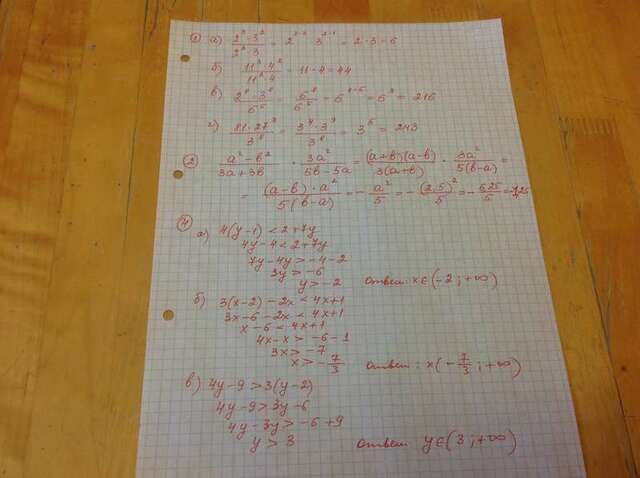 ① а) (2³ · 3²)/(2² · 3) = 2³⁻² · 3²⁻¹ = 2 · 3 = 6
б) (11³ · 4²)/(11² · 4) = 11 · 4 = 44
в) (2⁸ · 3⁸)/6⁵ = 6⁸/6⁵ = 6⁸⁻⁵ = 6³ = 216
г) (81 · 27³)/3⁸ = (3⁴ · 3⁹)/3⁸ = 3⁵ = 243
② (a² - b²)/(3a + 3b) · 3a²/(5b - 5a) = (a+b)(a-b)/3(a+b) · 3a²/5(b-a) =
(a-b) · a²/5(b-a) = - a²/5 = - (2,5)²/5 = - 6,25/5 = -1,25
④
а) 4(y-1) < 2+7y
4y-4 < 2+7y
7y-4y > -4-2
3y > -6
y > -2 ответ: x ∈ (-2 ; +∞)
б) 3(x-2) - 2x < 4x+1
3x-6-2x < 4x+1
x-6 < 4x+1
4x-x > -6-1
3x > -7
x > -7/3 ответ: x(-7/3 ; +∞)
в) 4y-9 > 3(y-2)
4y-9 > 3y-6
4y-3y > -6+9
y > 3 ответ y ∈ (3 ; +∞)